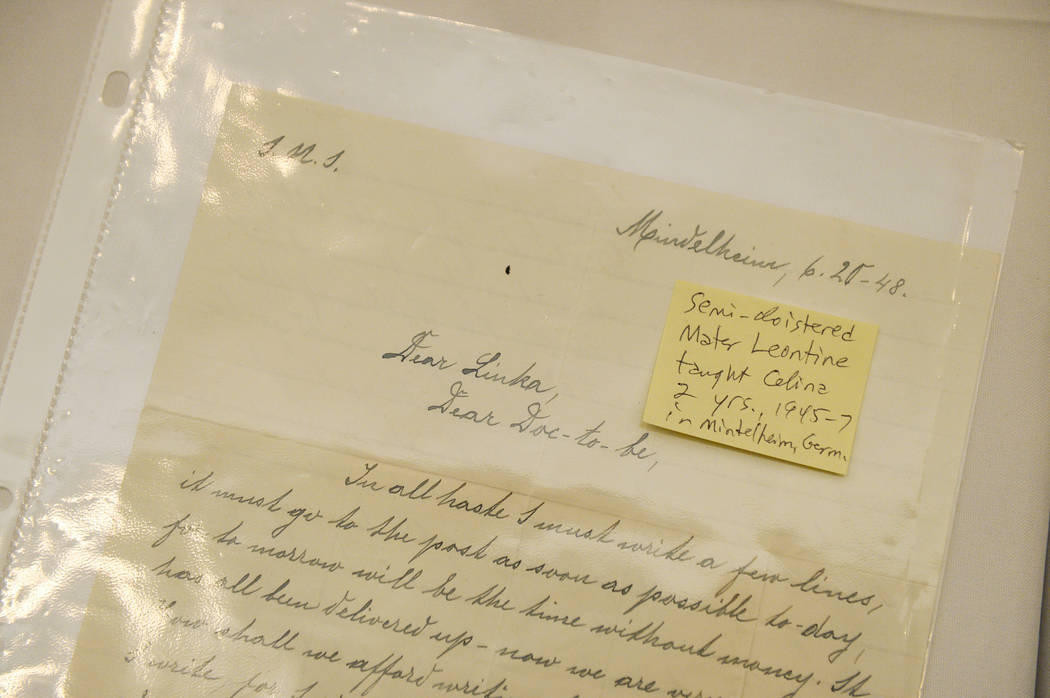 J. M. J.
Mindelheim, 6. 20-48.
Semi-cloistered
Mater Leontine
taught Celina
2 yrs., 1945-7
in Mintelheim, Germ.
Dear Linka,
Dear Doc-to-be,
In all haste I must write a few lines,
it must go to the post as soon as possible to-day,
for to morrow will be the time without money. It
has all been delivered up - now we are very
How shall we afford
I write for